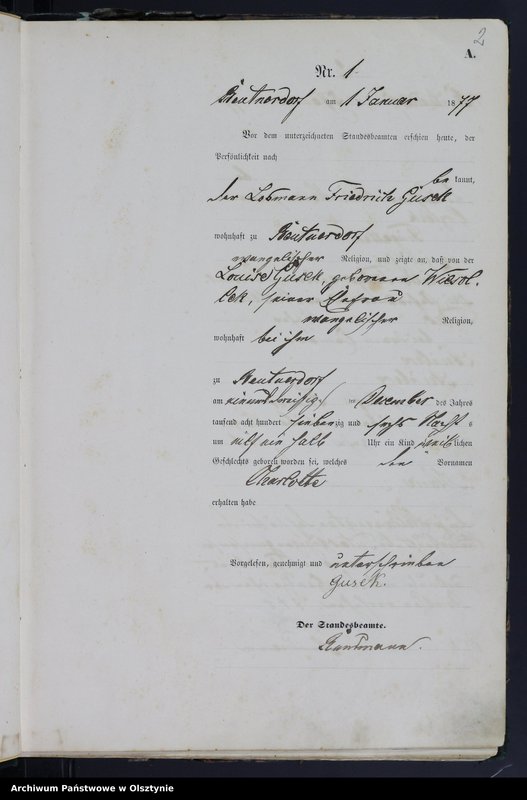 2
A.
Nr. 1
Beutnerdorf am 1 Januar 1877
Vor dem unterzeichneten Standesbeamten erschien heute, der
Persönlichkeit nach
be kannt,
der Losmann Friedrich Gusek
wohnhaft zu Beutnerdorf
evangelischer Religion, und zeigte an, daß von der
Louise Gusek, geborenen Wierol-
lek, seiner Ehefrau
evangelischer Religion,
wohnhaft bei ihm
zu Beutnerdorf
am einunddreißigs ten December des Jahres
tausend acht hundert siebenzig und sechs Nachts
um elf ein halb Uhr ein Kind weiblichen
Geschlechts geboren worden sei, welches den Vornamen
Charlotte
erhalten habe
Vorgelesen, genehmigt und unterschrieben
Gusek.
Der Standesbeamte.
Archiwum Państwowe w Olsztynie